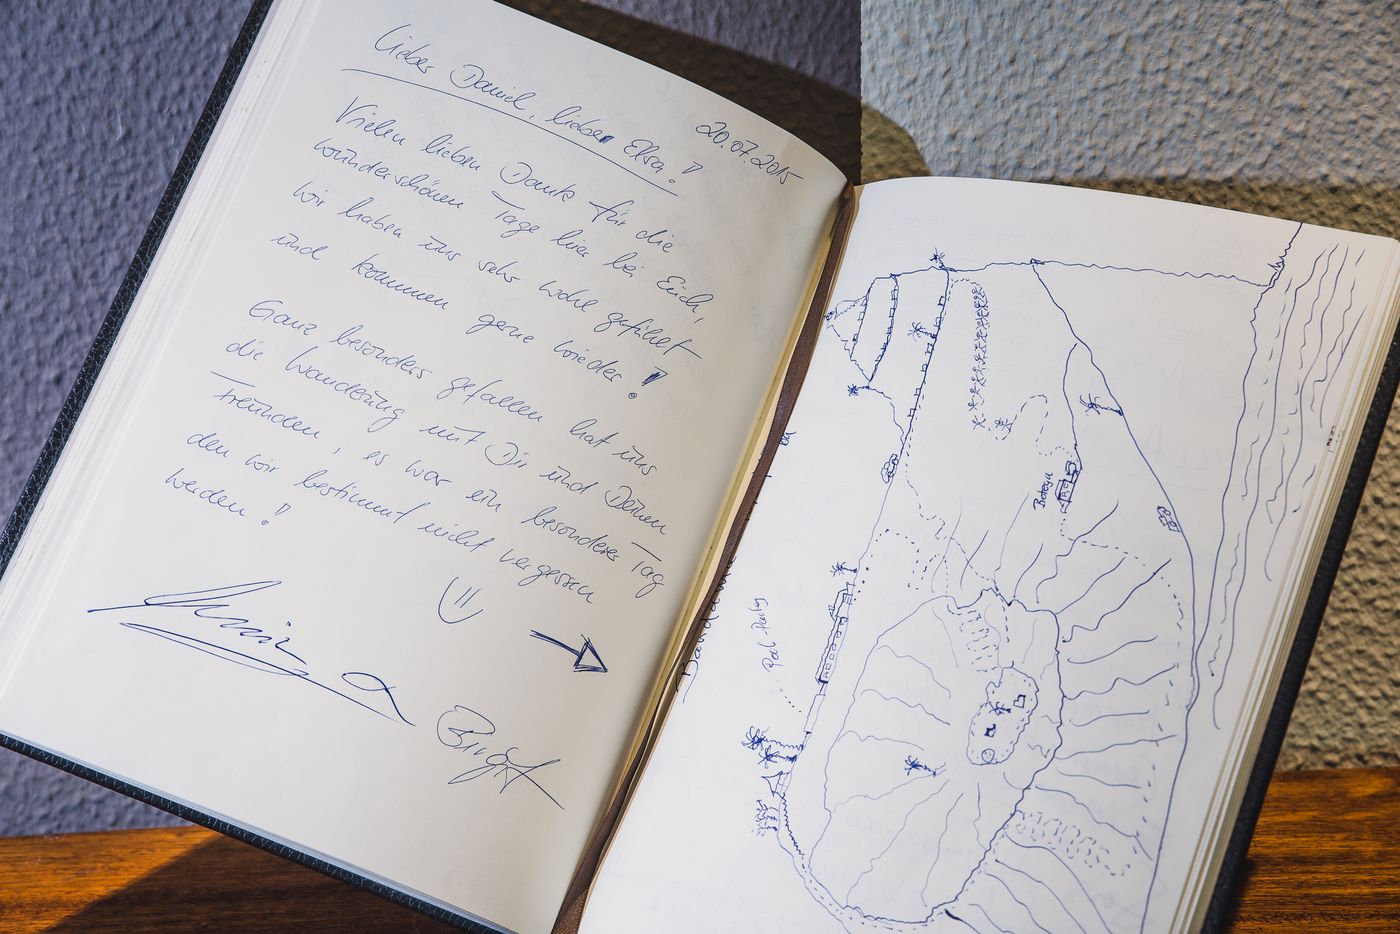 20.07.2015
Lieber Daniel, liebe Elsa!
Vielen lieben Dank für die
wunderschönen Tage hier bei Euch,
wir haben uns sehr wohl gefühlt
und kommen gerne wieder!
Ganz besonders gefallen hat uns
die Wanderung mit Dir und Deinen
Freunden, es war ein besonderer Tag
den wir bestimmt nicht vergessen
werden!
Birgit
Bodega